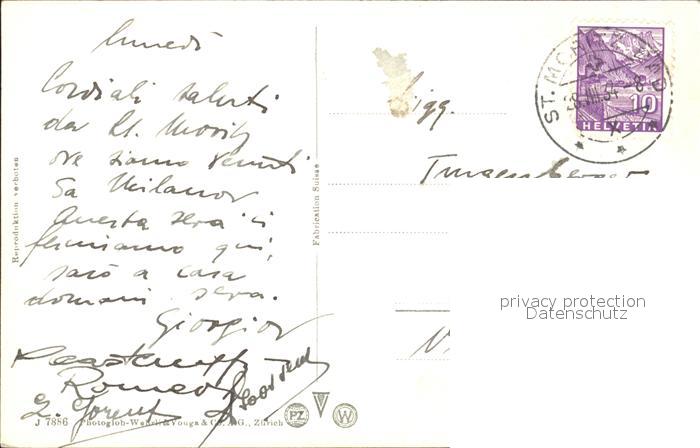 lunedì
Cordiali saluti
da St. Moritz
ove siamo venuti
da Milano
Questa sera ci
fermiamo qui,
sarò a casa
domani sera.
Giorgio
Romeo
J 7886 Photoglob-Wehrli & Vouga & Co. A.G., Zürich
PZ
W
Reproduktion verboten
Fabrication Suisse
Sigg.
ST. MORITZ
10
HELVETIA
privacy protection
Datenschutz